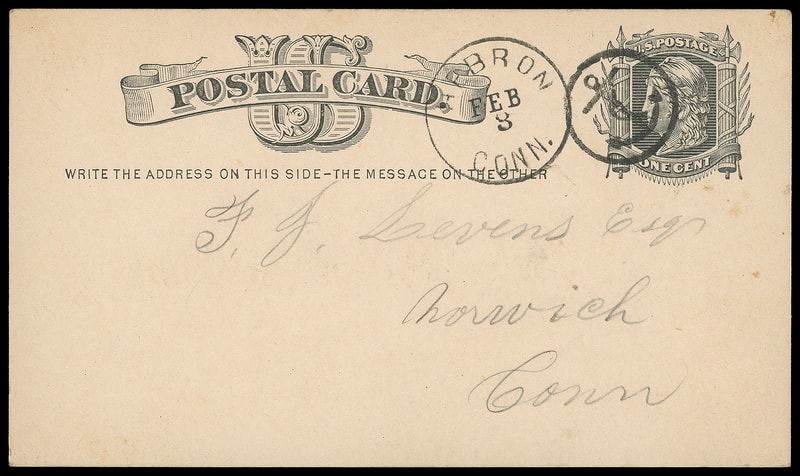 U.S. POSTAGE
US
POSTAL CARD.
HEBRON
FEB
3
CONN.
ONE CENT
WRITE THE ADDRESS ON THIS SIDE–THE MESSAGE ON THE OTHER
F. J. Levens Esq
Norwich
Conn